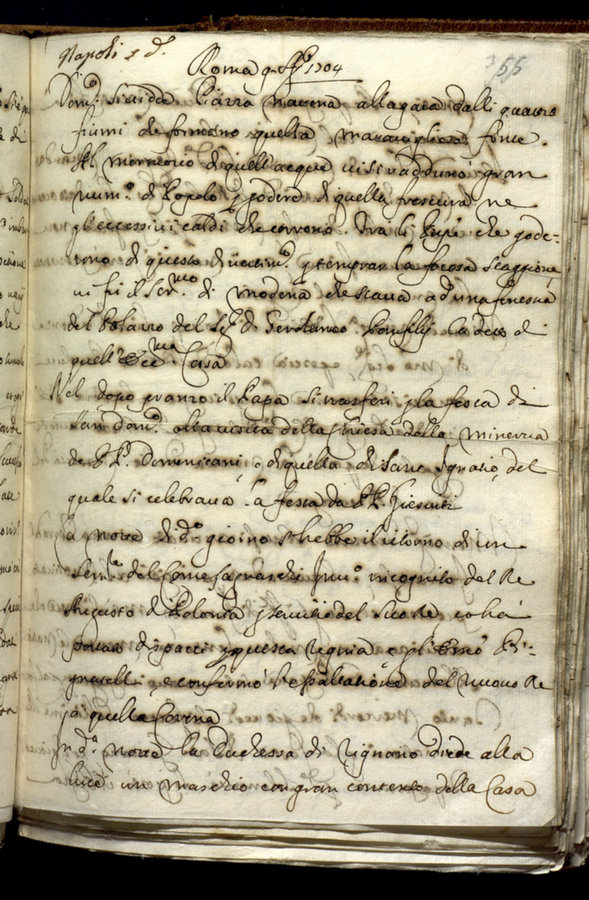 Napoli s d.
55
Roma 9 Agto 1704
Domca si vidde Piazza Navona allagata dalli quattro
fiumi che formono quella maravigliosa fonte.
Al mormorio di quell'acque vi si radduno gran
num.o di Popolo p godere di quella frescura ne
gl'eccessivi caldi che corrono. Tra li che gode-
rono di questo divertim.o p temprar la focosa staggione
vi fù il Ser.mo di Modena che stava ad una finestra
del Palazzo del Sig. D. Girolamo Panfilij
quell' Ecc.ma Casa
Nel dopo pranzo il Papa si trasferì p la festa di
San Dom.co alla visita della Chiesa della Minerva
de PP. Domenicani, e di quella di Sant Ignatio, del
quale si celebrava la festa da PP. Giesuiti
La notte di d.o giorno s'hebbe il ritorno di un
del Conte Lagnaschi inv.o incognito del Re
Augusto di Polonia p servitio del suo Re, co
portato dispacci p questa Regina e p l'Emo Pi-
gnatelli, e confermò l'essaltatione del nuovo Re
à quella Corona
In d.a notte la Duchessa di Rignano diede alla
luce un maschio con gran contento della Casa